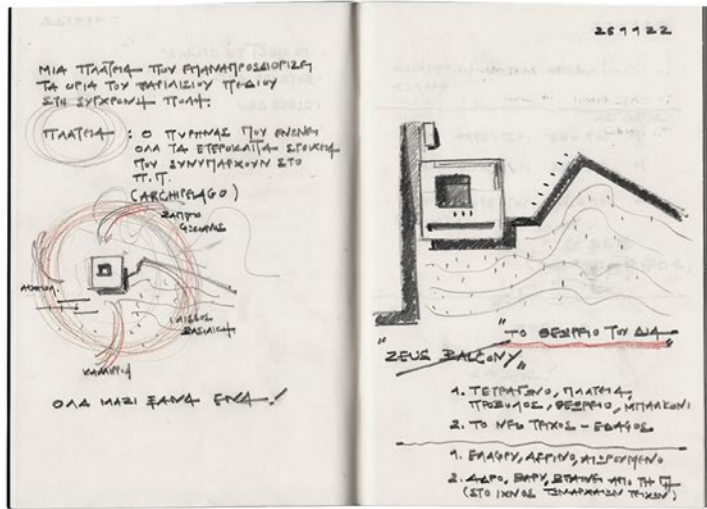 ΜΙΑ ΠΛΑΤΕΙΑ ΠΟΥ ΕΠΑΝΑΠΡΟΣΔΙΟΡΙΖΕΙ
ΤΑ ΟΡΙΑ ΤΟΥ ΠΑΡΙΛΙΣΙΟΥ ΠΕΔΙΟΥ
ΣΤΗ ΣΥΓΧΡΟΝΗ ΠΟΛΗ.
ΠΛΑΤΕΙΑ : Ο ΠΥΡΗΝΑΣ ΠΟΥ ΕΝΩΝΕΙ
ΟΛΑ ΤΑ ΕΤΕΡΟΚΛΙΤΑ ΣΤΟΙΧΕΙΑ
ΠΟΥ ΣΥΝΥΠΑΡΧΟΥΝ ΣΤΟ
Π.Π.
(ARCHIPELAGO)
ΖΑΠΠΕΙΟ
ΙΛΙΣΣΟΣ
ΒΑΣΙΛΙΚΗ
ΚΑΛΛΙΡΡΟΗ
ΟΛΑ ΜΑΖΙ ΞΑΝΑ ΕΝΑ!
261122
"ΤΟ ΘΕΩΡΕΙΟ ΤΟΥ ΔΙΑ"
"ZEUS BALCONY"
1. ΤΕΤΡΑΓΩΝΟ, ΠΛΑΤΕΙΑ,
ΠΡΟΒΟΛΟΣ, ΘΕΩΡΕΙΟ, ΜΠΑΛΚΟΝΙ
2. ΤΟ ΝΕΟ ΤΕΙΧΟΣ - ΕΔΑΦΟΣ
1. ΕΛΑΦΡΥ, ΑΕΡΙΝΟ, ΑΙΩΡΟΥΜΕΝΟ
2. ΑΔΡΟ, ΒΑΡΥ, ΒΓΑΙΝΕΙ ΑΠΟ ΤΗ ΓΗ
(ΣΤΟ ΙΧΝΟΣ ΤΩΝ ΑΡΧΑΙΩΝ ΤΕΙΧΩΝ)